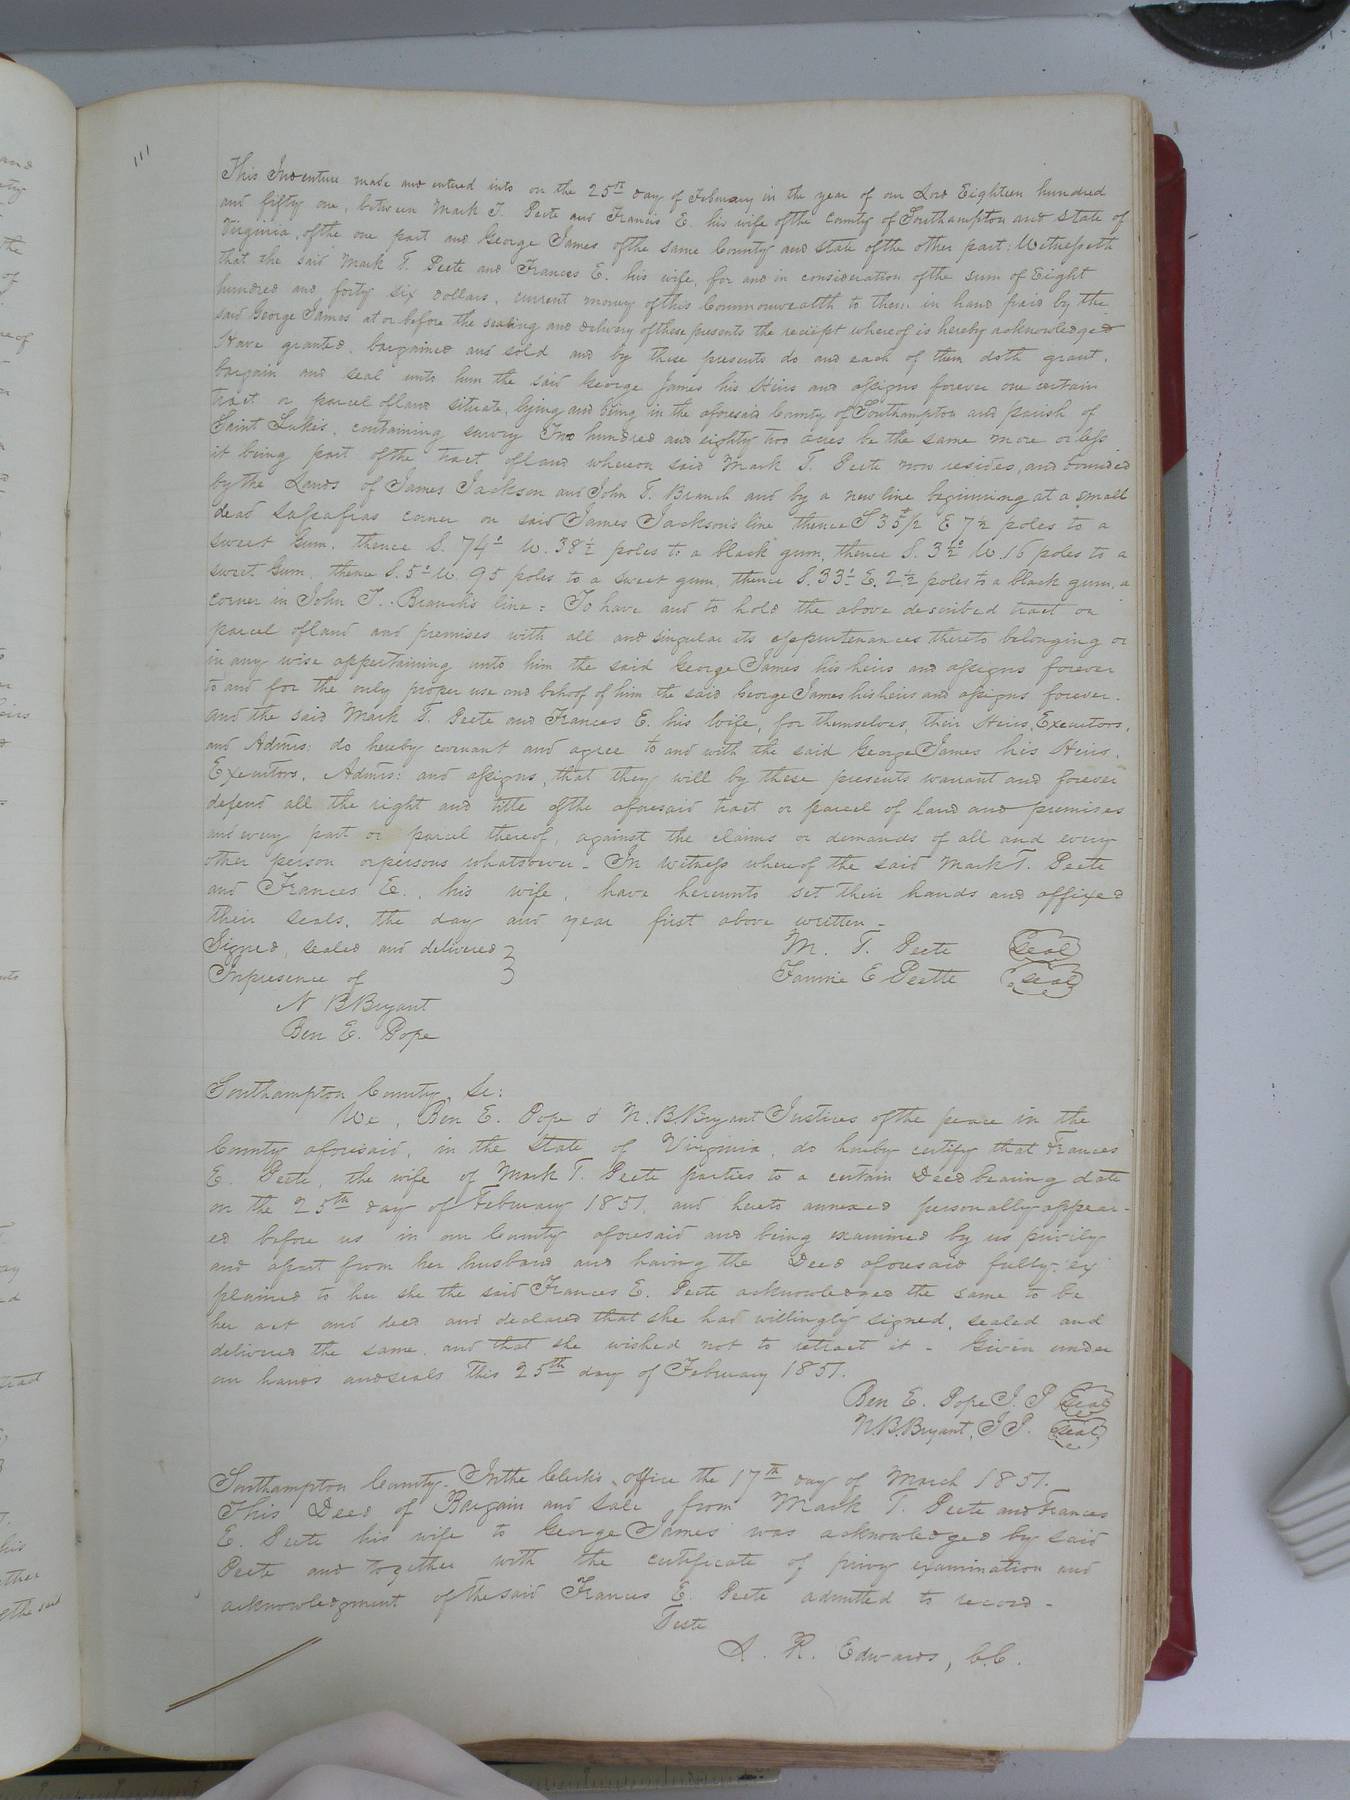 This Indenture made and entered into on the 25th day of February in the year of our Lord Eighteen hundred
and fifty one, between Mark T. Peete and Francis E. his wife of the County of Southampton and State of
Virginia, of the one part and George James of the same County and State of the other part: Witnesseth
that the said Mark T. Peete and Frances E. his wife, for and in consideration of the sum of Eight
hundred and forty six dollars, current money of this Commonwealth to them in hand paid by the
said George James at or before the sealing and delivery of these presents the reciept whereof is hereby acknowledged
Have granted, bargained and sold and by these presents do and each of them doth grant,
bargain and seal unto him the said George James his Heirs and assigns forever one certain
tract or parcel of land situate, lying and being in the aforesaid County of Southampton and parish of
Saint Luke's, containing survey Two hundred and eighty two acres be the same more or less
it being part of the tract of land whereon said Mark T. Peete now resides, and bounded
by the Lands of James Jackson and John T. Branch and by a new line beginning at a small
dead sassafras corner on said James Jackson's line thence S 35°½ E 7½ poles to a
sweet gum, thence S. 74° W. 38½ poles to a black gum, thence S. 3½° W. 16 poles to a
sweet gum, thence S. 5° W. 95 poles to a sweet gum, thence S. 33° E. 2½ poles to a black gum, a
corner in John T. Branch's line: To have and to hold the above described tract or
parcel of land and premises with all and singular its appurtenances thereto belonging or
in any wise appertaining unto him the said George James his heirs and assigns forever
to and for the only proper use and behoof of him the said George James his heirs and assigns forever.
And the said Mark T. Peete and Frances E. his Wife, for themselves, their Heirs, Executors,
and Admrs: do hereby covenant and agree to and with the said George James his Heirs,
Executors, Admrs: and assigns, that they will by these presents warrant and forever
defend all the right and title of the aforesaid tract or parcel of land and premises
and every part or parcel thereof, against the claims or demands of all and every
other person or persons whatsoever - In witness whereof the said Mark T. Peete
and Frances E., his wife, have hereunto set their hands and affixed
their seals, the day and year first above written -
Signed, sealed and delivered } M. T. Peete (seal)
In presence of } Fannie E Peette (seal)
N B Bryant
Ben E. Pope
Southampton County Sc:
We, Ben E. Pope & N. B. Bryant Justices of the peace in the
County aforesaid, in the State of Virginia, do hereby certify that Frances
E. Peete, the wife of Mark T. Peete parties to a certain Deed bearing date
on the 25th day of February 1851, and hereto annexed personally appear-
ed before us in our County aforesaid and being examined by us privily
and apart from her husband and having the Deed aforesaid fully ex
plained to her she the said Frances E. Peete acknowledged the same to be
her act and deed and declared that she had willingly signed, sealed and
delivered the same, and that she wished not to retract it - Given under
our hands and seals this 25th day of February 1851.
Ben E. Pope J. P (seal)
N. B. Bryant, J P. (seal)
Southampton County - In the Clerk's office the 17th day of March 1851.
This Deed of Bargain and Sale from Mark T. Peete and Frances
E. Peete his wife to George James was acknowledged by said
Peete and together with the certificate of privy examination and
acknowledgment of the said Frances E. Peete admitted to record -
Teste
L. R. Edwards, C.C.